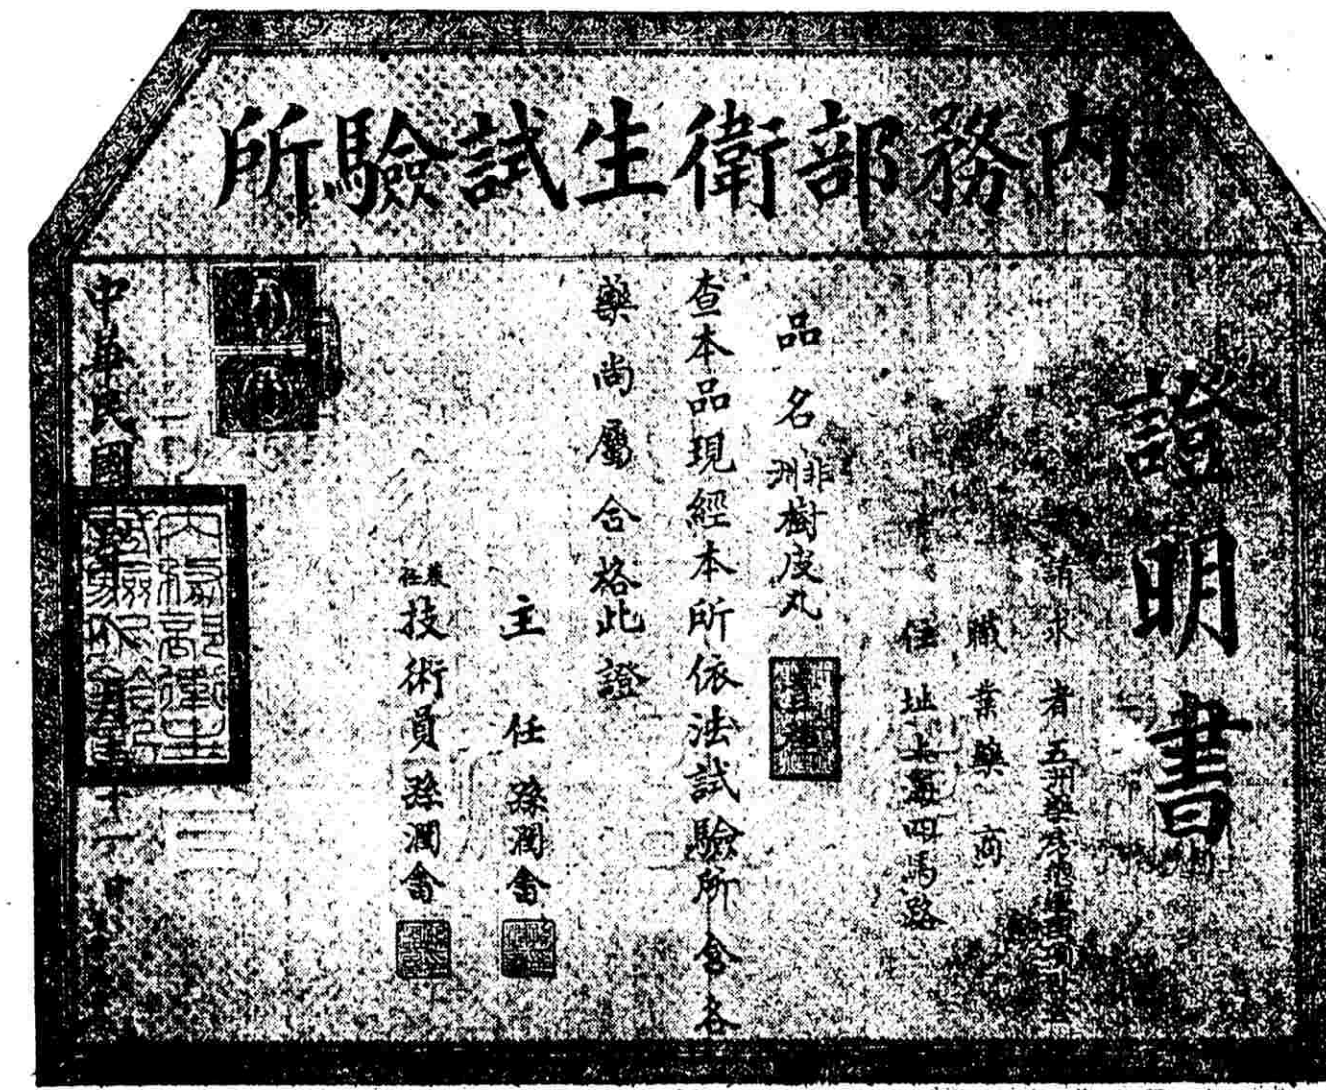 內務部衛生試驗所
證明書
請求者五洲藥房
職業藥商
住址上海四馬路
品名非洲樹皮丸
查本品現經本所依法試驗所含各
藥尚屬合格此證
主任孫潤畬
兼任技術員孫潤畬
中華民國
內務部衛生試驗所